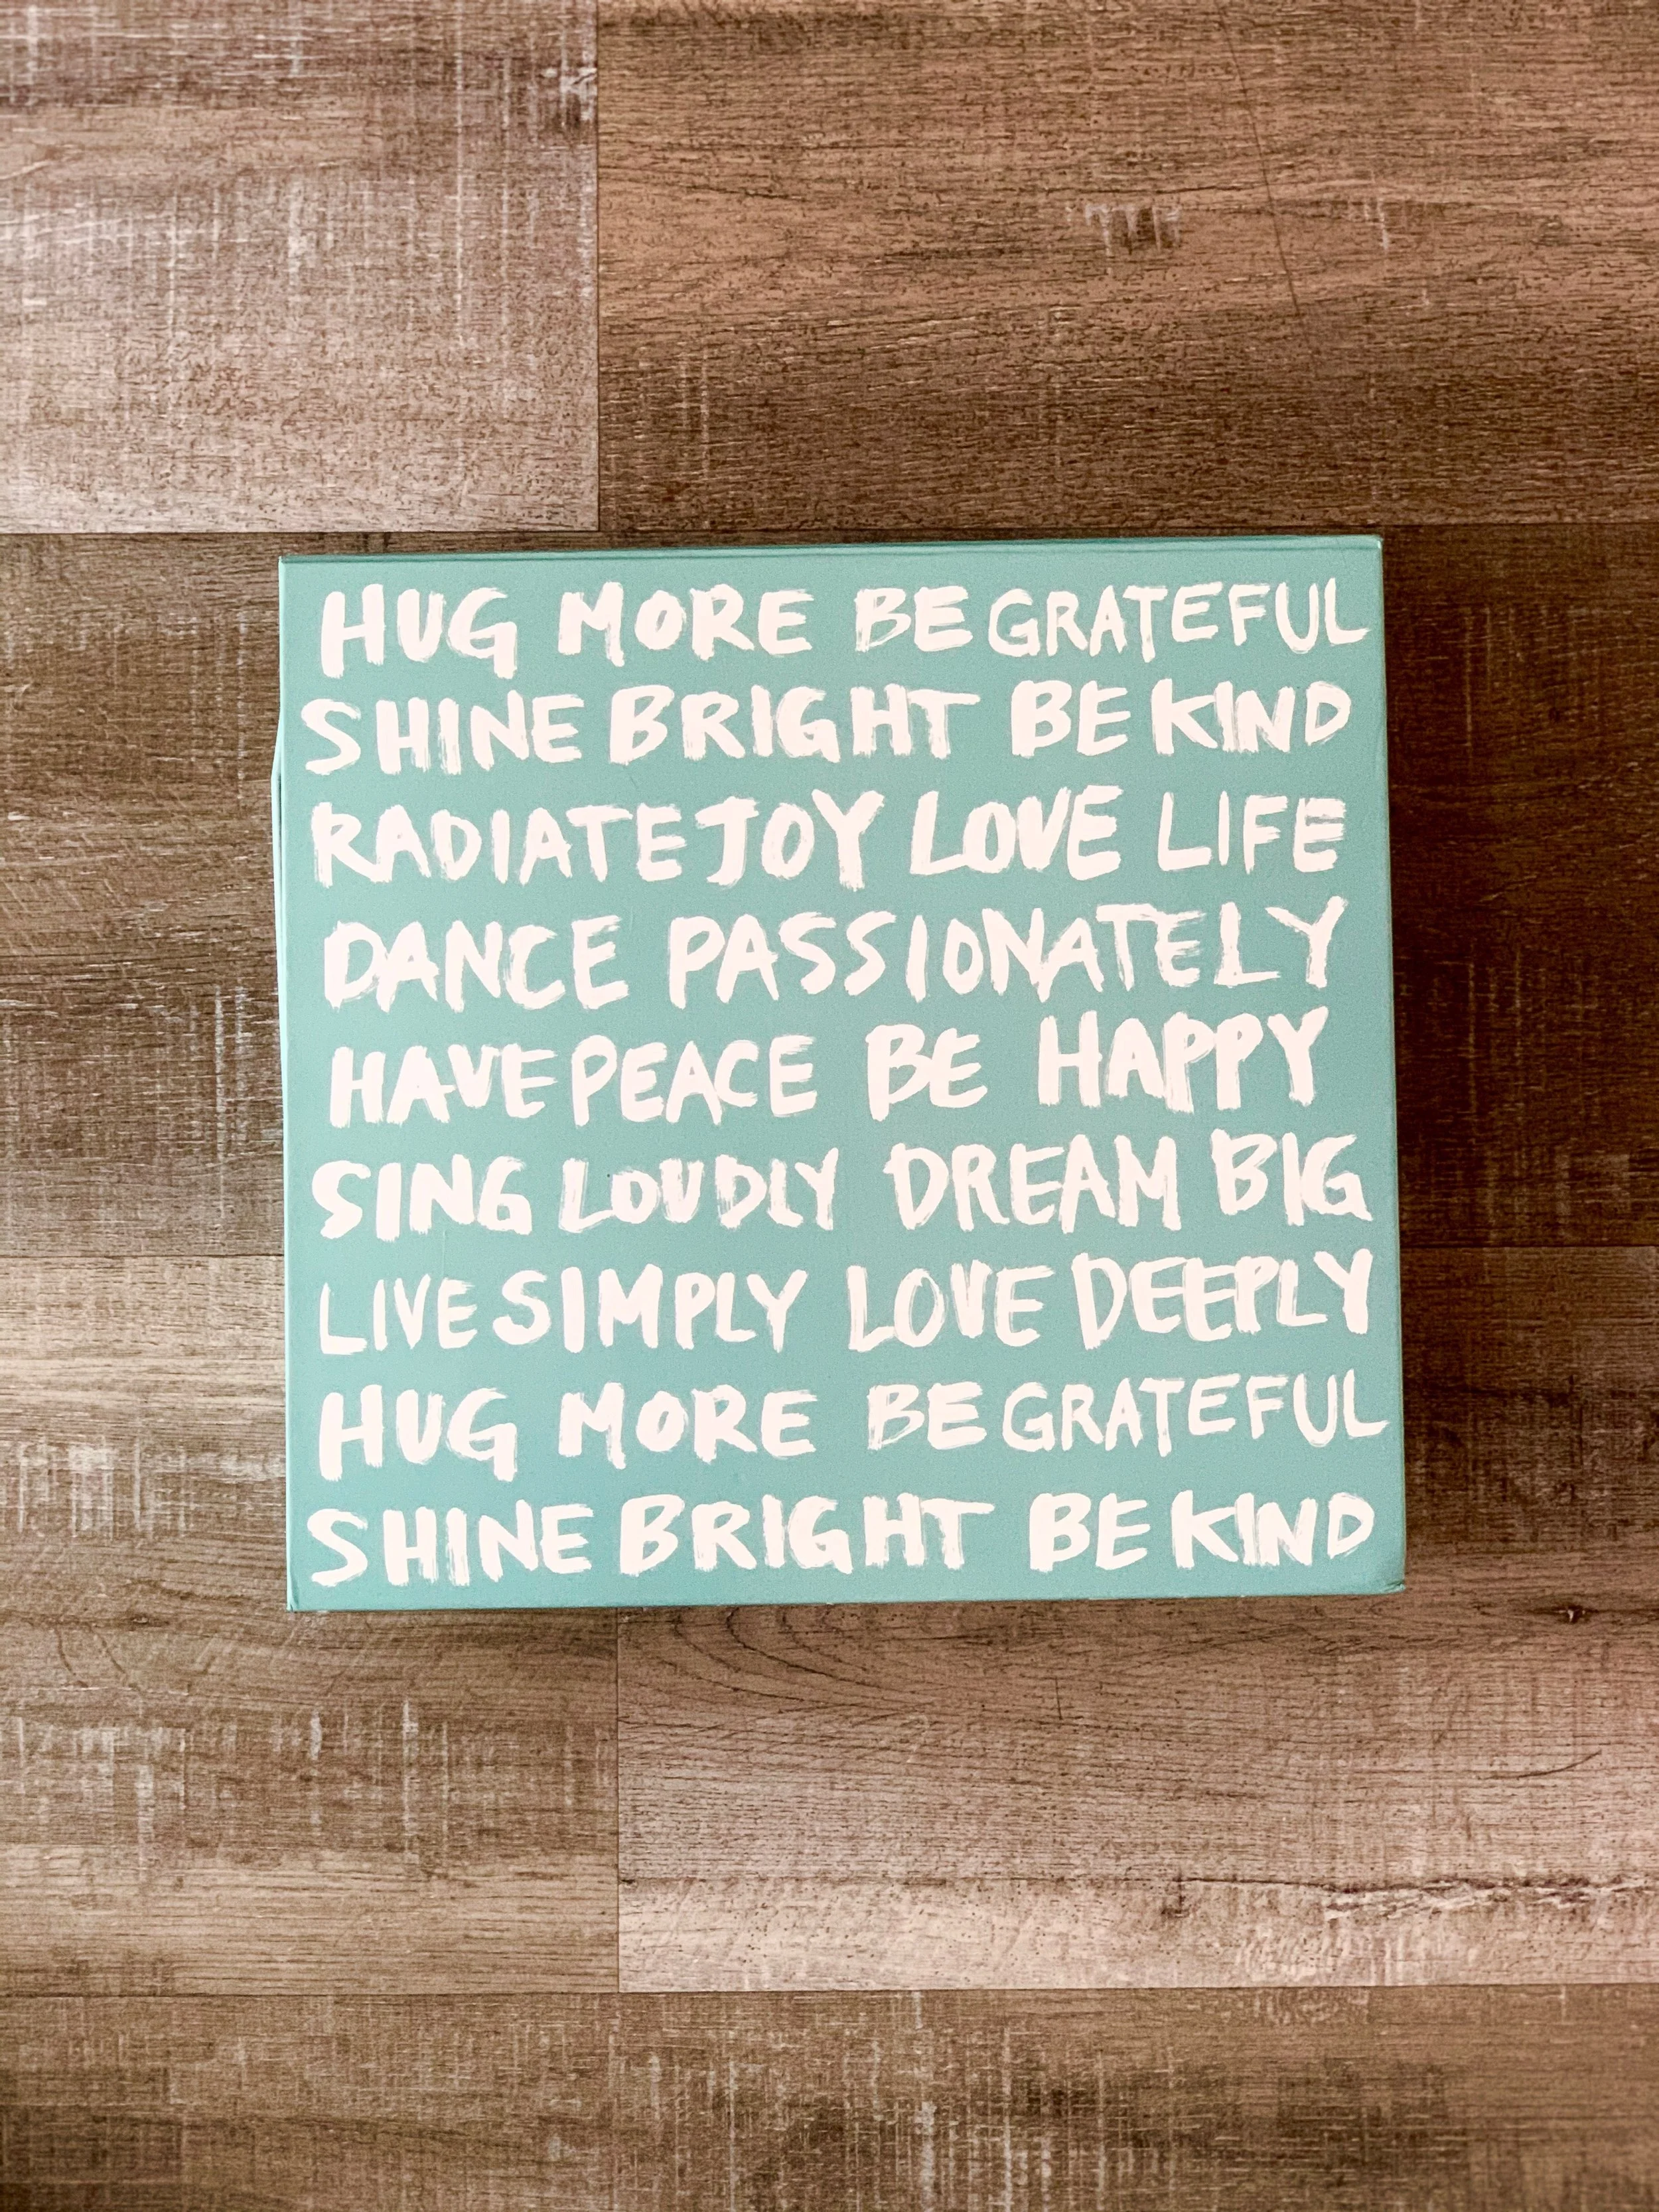 HUG MORE BE GRATEFUL
SHINE BRIGHT BE KIND
RADIATE JOY LOVE LIFE
DANCE PASSIONATELY
HAVE PEACE BE HAPPY
SING LOUDLY DREAM BIG
LIVE SIMPLY LOVE DEEPLY
HUG MORE BE GRATEFUL
SHINE BRIGHT BE KIND